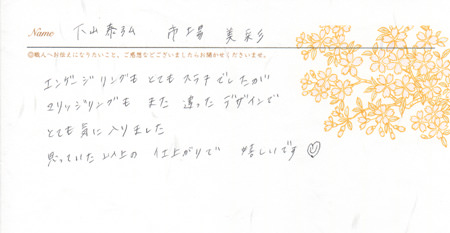 Name 下山泰弘 市場 美彩
◎職人へお伝えになりたいこと、ご感想などございましたらお聞かせくださいませ。
エンゲージリングも とても ステキでしたが
マリッジリングも また 違った デザインで
とても 気に入りました
思っていた以上の 仕上がりで 嬉しいです♡